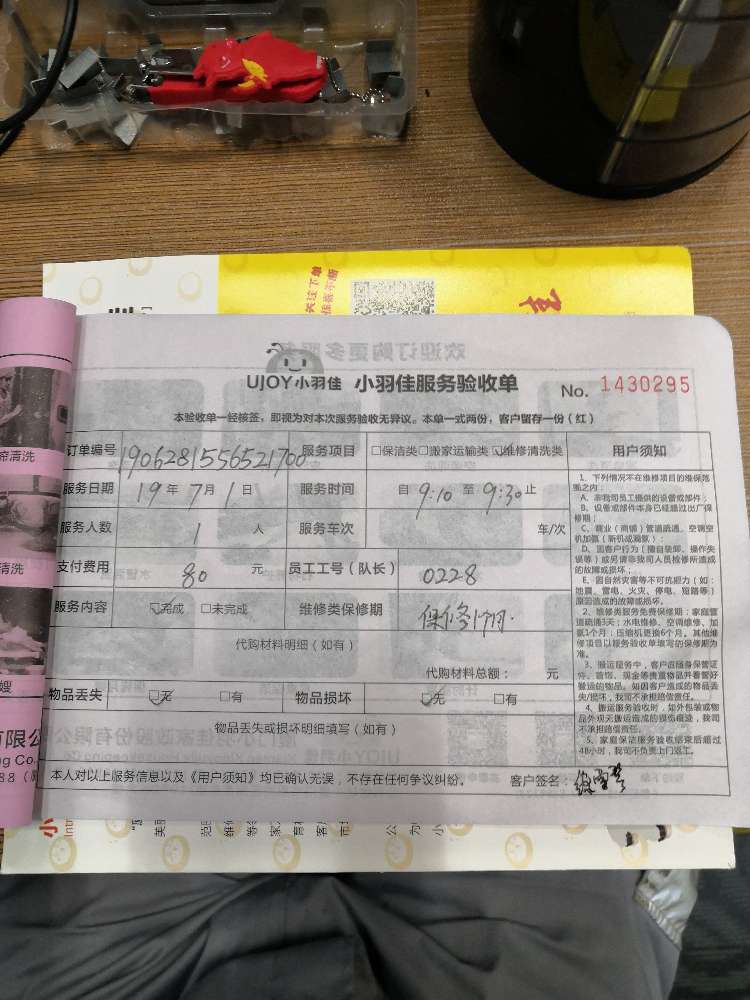 关注下单
UJOY小羽佳 小羽佳服务验收单 No. 1430295
本验收单一经核签，即视为对本次服务验收无异议。本单一式两份，客户留存一份（红）
订单编号 1906281556521700 服务项目 □保洁类□搬家运输类☑维修清洗类 用户须知
服务日期 19年7月1日 服务时间 自9:10至9:30止
服务人数 1 人 服务车次 车/次
支付费用 80 元 员工工号（队长） 0228
服务内容 ☑完成 □未完成 维修类保修期
代购材料明细（如有）
代购材料总额： 元
物品丢失 ☑无 □有 物品损坏 ☑无 □有
物品丢失或损坏明细填写（如有）
本人对以上服务信息以及《用户须知》均已确认无误，不存在任何争议纠纷。 客户签名：
1、下列情况不在维修项目的维保范围之内：
A、非我司员工提供的设备或部件；
B、设备或部件本身已经超过出厂保修期；
C、商业（商铺）管道疏通、空调空机加氟（新机或漏氟）；
D、因客户行为（擅自装卸、操作失误等）或另请非我司人员检修所造成的故障或损坏；
E、因自然灾害等不可抗原力（如：地震、雷电、火灾、停电、短路等）原因造成的故障或损坏。
2、维修类服务免费保修期：家庭管道疏通3天；水电维修、空调维修、加氟1个月；压缩机更换6个月。其他维修项目以服务验收单填写的保修期为准。
3、搬运服务中，客户应随身保管证件、首饰、现金等贵重物品并看管好搬运的物品。如因客户造成的物品丢失/损坏，我司不承担赔偿责任。
4、搬运服务验收时，如外包装或物品外观无搬运造成的损伤痕迹，我司不承担赔偿责任。
5、家庭保洁服务验收结束后超过48小时，我司不负责上门返工。
清洗
清洗
嫂
有限公